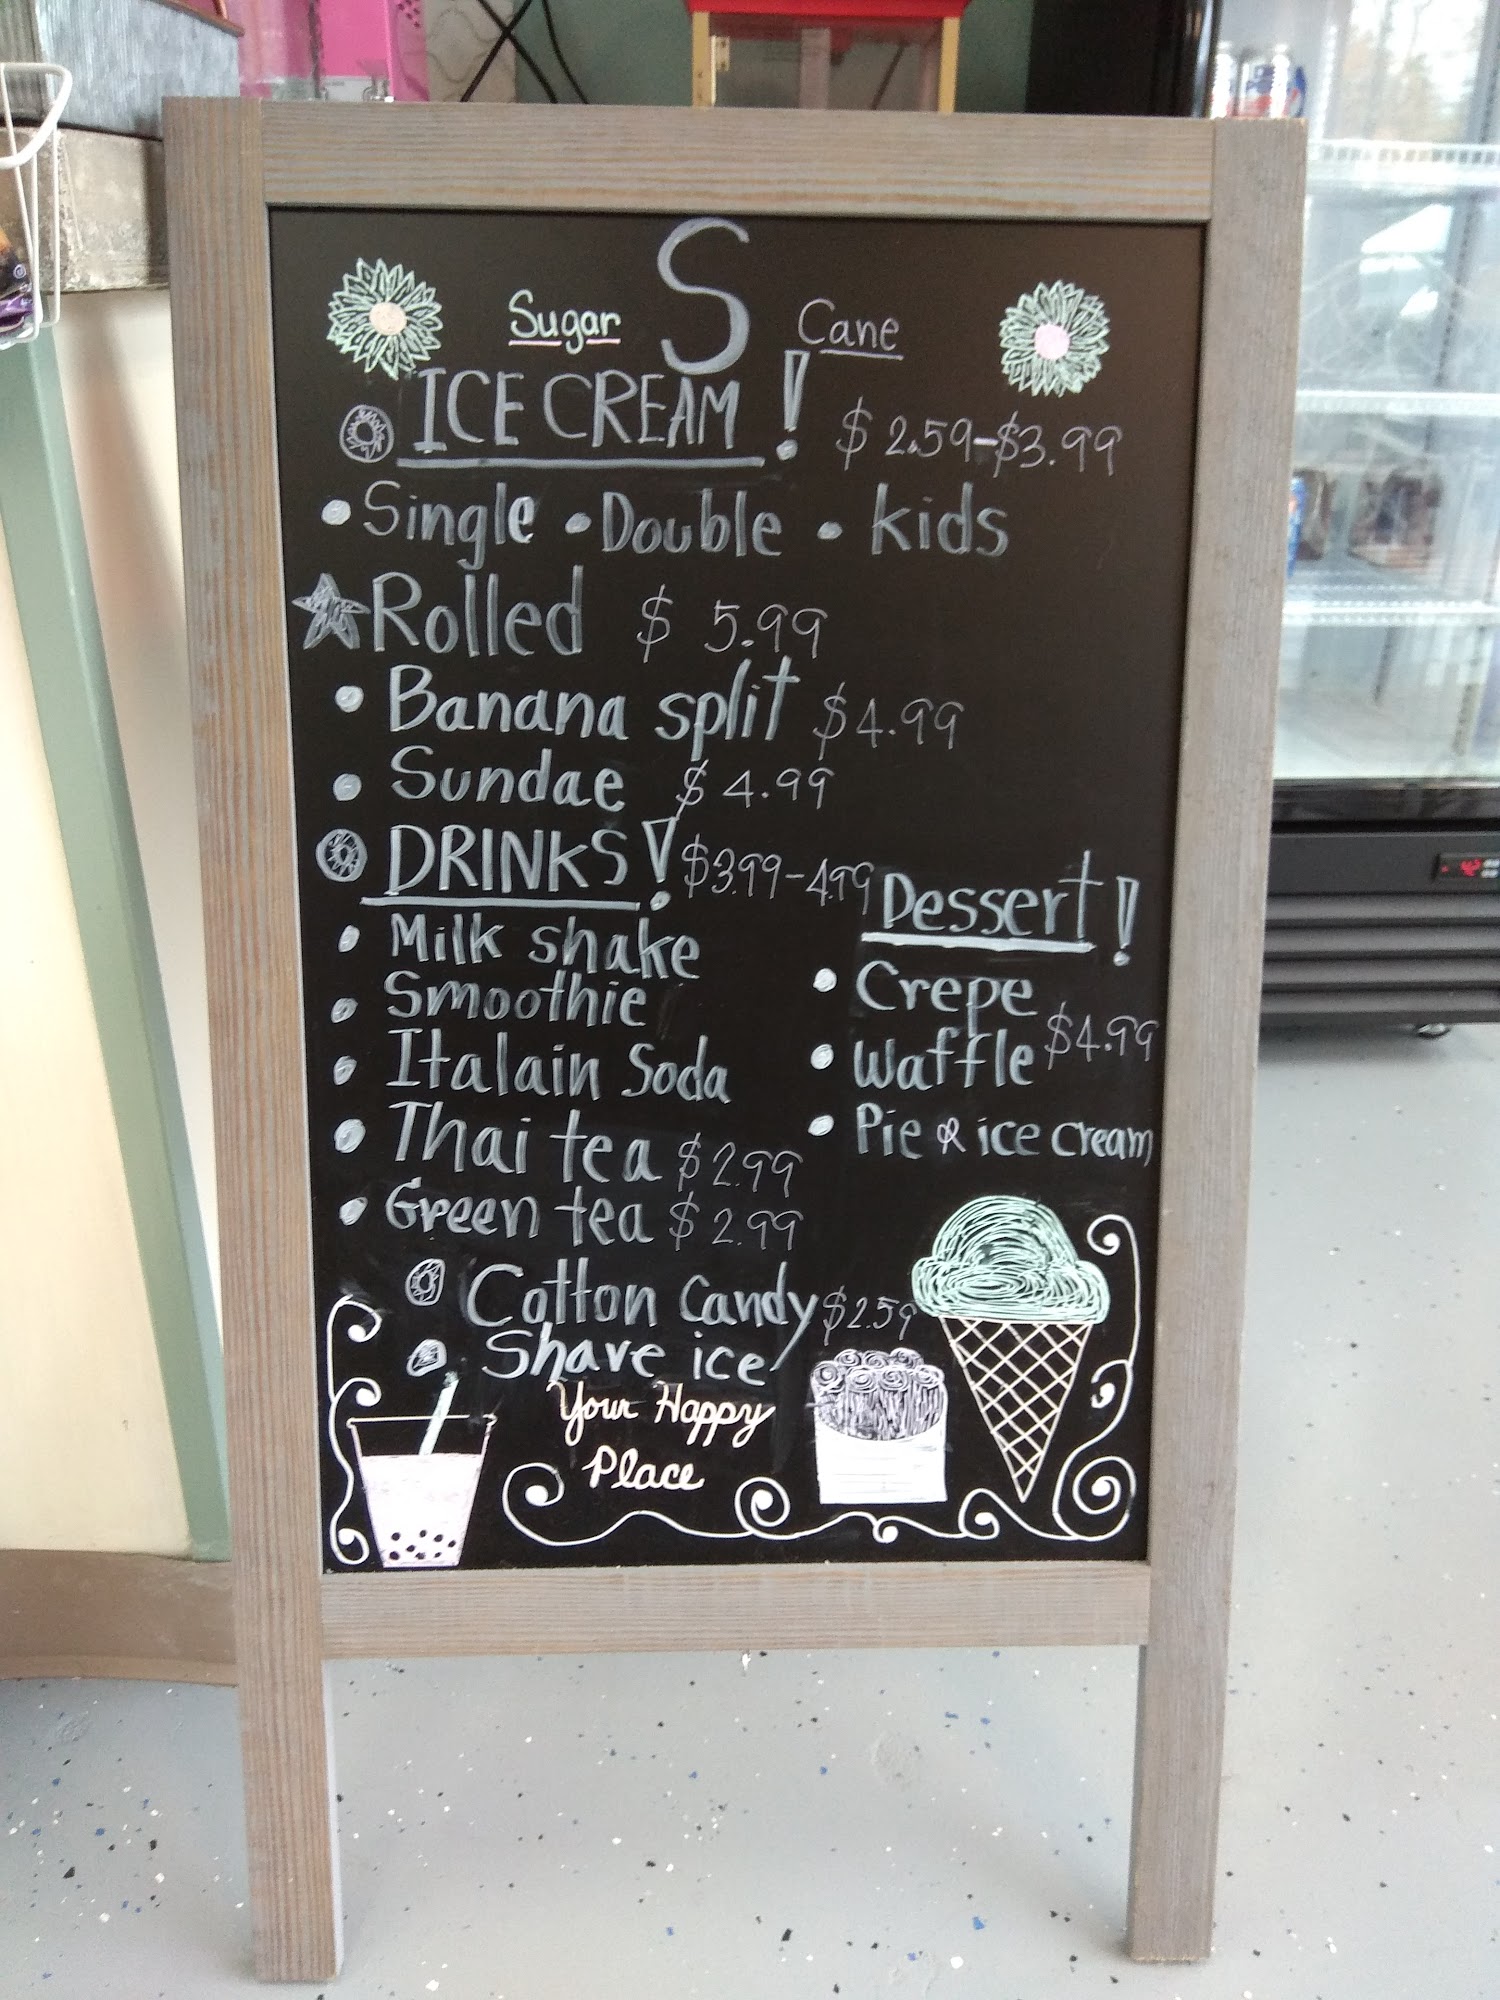 S
Sugar Cane
ICE CREAM! $2.59-$3.99
• Single • Double • kids
Rolled $5.99
• Banana split $4.99
• Sundae $4.99
DRINKS! $3.99-4.99
• Milk shake
• Smoothie
• Italain Soda
• Thai tea $2.99
• Green tea $2.99
Dessert!
• Crepe
• Waffle $4.99
• Pie & ice cream
Cotton Candy $2.59
Shave ice
Your Happy
Place